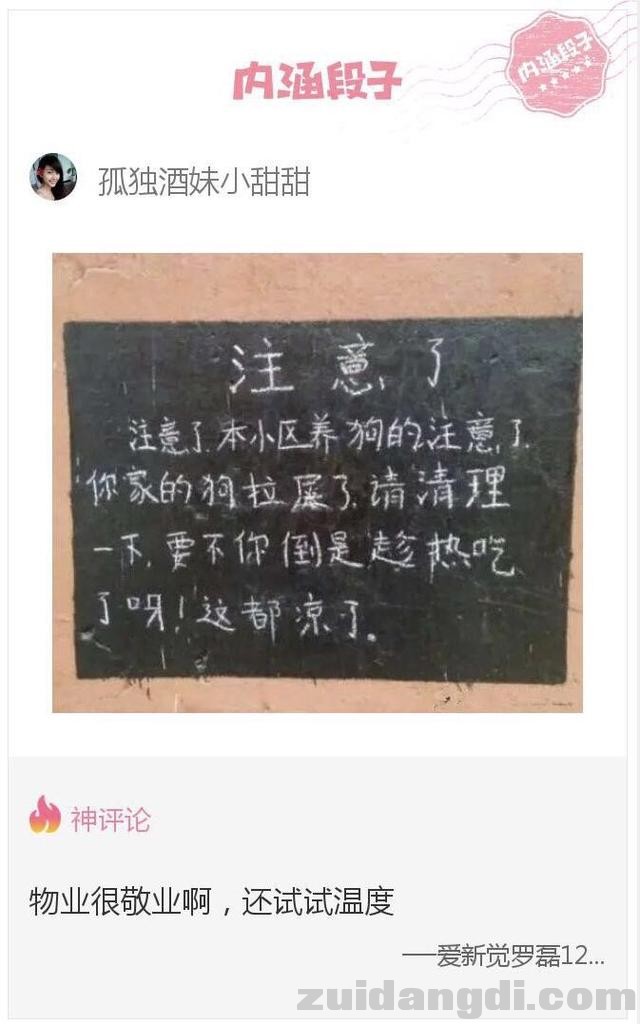 内涵段子
内涵段子
孤独酒妹小甜甜
注意了
注意了.本小区养狗的注意了.
你家的狗拉屎了.请清理
一下.要不你倒是趁热吃
了呀!这都凉了。
神评论
物业很敬业啊，还试试温度
──爱新觉罗磊12...
zuidangdi.com